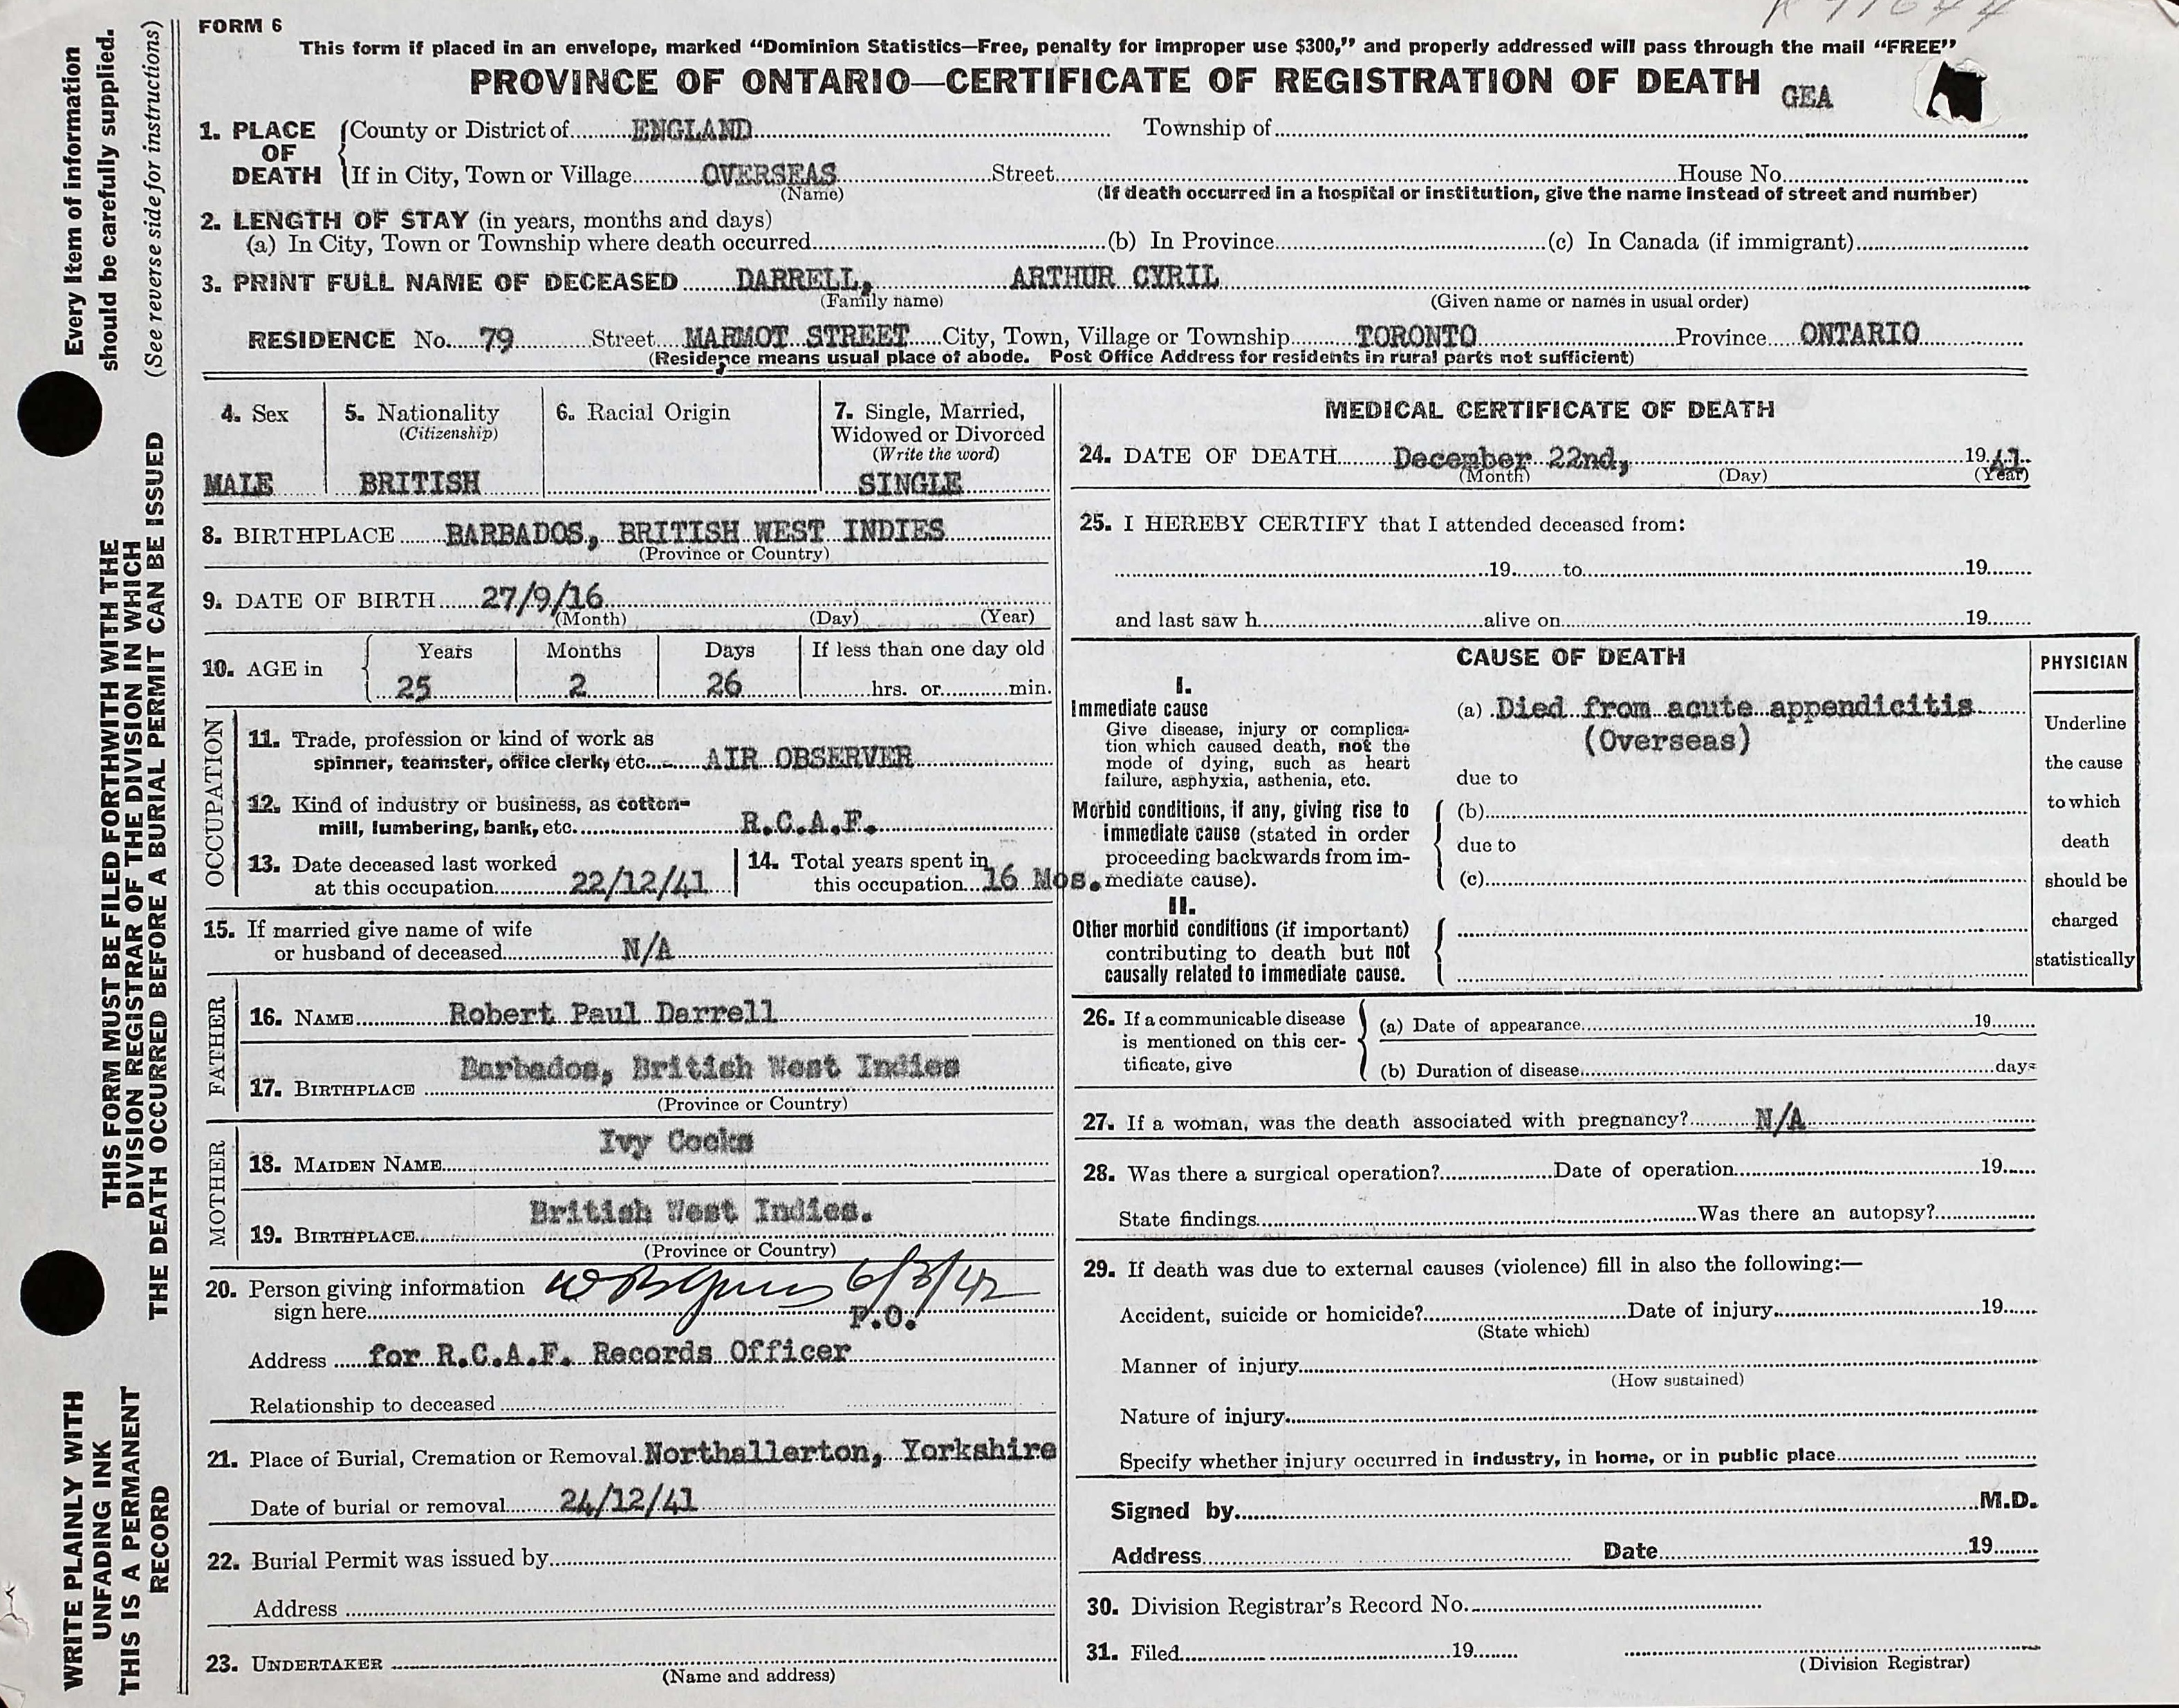 FORM 6
This form if placed in an envelope, marked “Dominion Statistics—Free, penalty for improper use $300,” and properly addressed will pass through the mail “FREE”
PROVINCE OF ONTARIO—CERTIFICATE OF REGISTRATION OF DEATH GEA
1. PLACE OF DEATH County or District of ENGLAND Township of
If in City, Town or Village OVERSEAS Street House No.
(Name) (If death occurred in a hospital or institution, give the name instead of street and number)
2. LENGTH OF STAY (in years, months and days)
(a) In City, Town or Township where death occurred (b) In Province (c) In Canada (if immigrant)
3. PRINT FULL NAME OF DECEASED DARRELL, ARTHUR CYRIL
(Family name) (Given name or names in usual order)
RESIDENCE No. 79 Street MARMOT STREET City, Town, Village or Township TORONTO Province ONTARIO
(Residence means usual place of abode. Post Office Address for residents in rural parts not sufficient)
4. Sex
MALE
5. Nationality
(Citizenship)
BRITISH
6. Racial Origin
7. Single, Married,
Widowed or Divorced
(Write the word)
SINGLE
8. BIRTHPLACE BARBADOS, BRITISH WEST INDIES
(Province or Country)
9. DATE OF BIRTH 27/9/16
(Month) (Day) (Year)
10. AGE in
Years Months Days If less than one day old
25 2 26 hrs. or min.
OCCUPATION
11. Trade, profession or kind of work as
spinner, teamster, office clerk, etc. AIR OBSERVER
12. Kind of industry or business, as cotton-
mill, lumbering, bank, etc. R.C.A.F.
13. Date deceased last worked
at this occupation 22/12/41
14. Total years spent in
this occupation 16 Mos.
15. If married give name of wife
or husband of deceased N/A
FATHER
16. NAME Robert Paul Darrell
Barbados, British West Indies
17. BIRTHPLACE
(Province or Country)
MOTHER
Ivy Cocks
18. MAIDEN NAME
British West Indies.
19. BIRTHPLACE
(Province or Country)
20. Person giving information
sign here 6/3/42
F.O.
Address for R.C.A.F. Records Officer
Relationship to deceased
21. Place of Burial, Cremation or Removal Northallerton, Yorkshire
Date of burial or removal 24/12/41
22. Burial Permit was issued by
Address
23. UNDERTAKER
(Name and address)
MEDICAL CERTIFICATE OF DEATH
24. DATE OF DEATH December 22nd, 1941
(Month) (Day) (Year)
25. I HEREBY CERTIFY that I attended deceased from:
19 to 19
and last saw h alive on 19
CAUSE OF DEATH
I.
Immediate cause
Give disease, injury or complica-
tion which caused death, not the
mode of dying, such as heart
failure, asphyxia, asthenia, etc.
(a) Died from acute appendicitis
(Overseas)
due to
Morbid conditions, if any, giving rise to
immediate cause (stated in order
proceeding backwards from im-
mediate cause).
(b)
due to
(c)
II.
Other morbid conditions (if important)
contributing to death but not
causally related to immediate cause.
PHYSICIAN
Underline
the cause
to which
death
should be
charged
statistically
26. If a communicable disease
is mentioned on this cer-
tificate, give
(a) Date of appearance 19
(b) Duration of disease days
27. If a woman, was the death associated with pregnancy? N/A
28. Was there a surgical operation? Date of operation 19
State findings Was there an autopsy?
29. If death was due to external causes (violence) fill in also the following:—
Accident, suicide or homicide? Date of injury 19
(State which)
Manner of injury
(How sustained)
Nature of injury
Specify whether injury occurred in industry, in home, or in public place
Signed by M.D.
Address Date 19
30. Division Registrar's Record No.
31. Filed 19
(Division Registrar)
Every Item of information
should be carefully supplied.
(See reverse side for instructions)
THIS FORM MUST BE FILED FORTHWITH WITH THE
DIVISION REGISTRAR OF THE DIVISION IN WHICH
THE DEATH OCCURRED BEFORE A BURIAL PERMIT CAN BE ISSUED
WRITE PLAINLY WITH
UNFADING INK
THIS IS A PERMANENT
RECORD